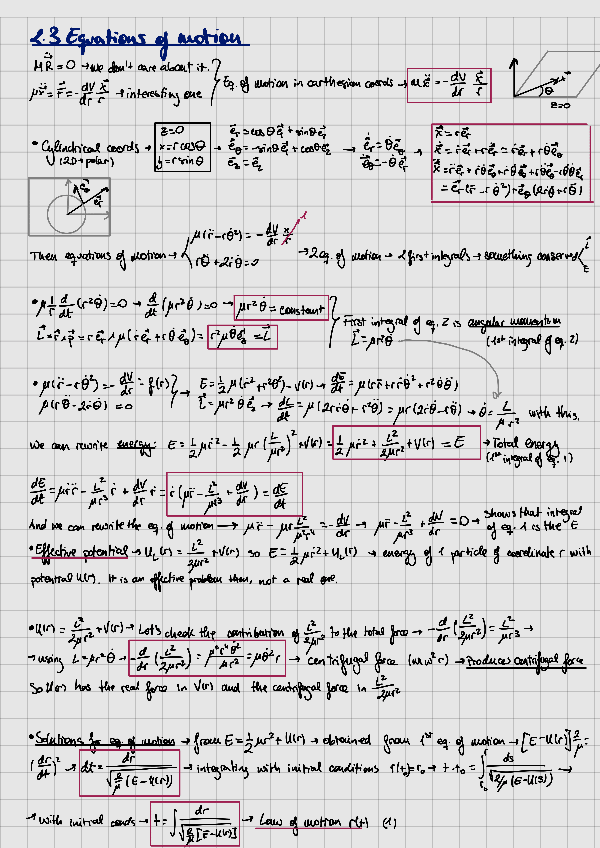 2.3 Equations of motion
M\ddot{\vec{R}} = 0 → we don't care about it.
μ\ddot{\vec{r}} = \vec{F} = -\frac{dV}{dr} \frac{\vec{x}}{r} → interesting one
Eq. of motion in carthesian coords → m\ddot{\vec{x}} = -\frac{dV}{dr} \frac{\vec{x}}{r}
z=0
• Cylindrical coords → z=0 x=r cosθ y=r sinθ → \vec{e}_r = cosθ \vec{e}_1 + sinθ \vec{e}_2 \vec{e}_θ = -sinθ \vec{e}_1 + cosθ \vec{e}_2 → \dot{\vec{e}}_r = \dot{θ}\vec{e}_θ \dot{\vec{e}}_θ = -\dot{θ}\vec{e}_r →
(2D → polar)
\vec{x} = r\vec{e}_r
\dot{\vec{x}} = \dot{r}\vec{e}_r + r\dot{\vec{e}}_r = \dot{r}\vec{e}_r + r\dot{θ}\vec{e}_θ
= \vec{e}_r(\ddot{r} - r\dot{θ}^2) + \vec{e}_θ(2\dot{r}\dot{θ} + r\ddot{θ})
μ(\ddot{r} - r\dot{θ}^2) = -\frac{dV}{dr} \frac{x}{r}
Then equations of motion → r\ddot{θ} + 2\dot{r}\dot{θ} = 0 → 2 eq. of motion → 2 first integrals → something conserved L E
• μ\frac{1}{r}\frac{d}{dt}(r^2\dot{θ}) = 0 → \frac{d}{dt}(μr^2\dot{θ}) = 0 → μr^2\dot{θ} = constant
First integral of eq. 2 is angular momentum
\vec{L} = μr^2\dot{θ} (1st integral of eq. 2)
• μ(\ddot{r} - r\dot{θ}^2) = -\frac{dV}{dr} = f(r)
→ E = \frac{1}{2}μ(\dot{r}^2 + r^2\dot{θ}^2) - V(r) → \frac{dE}{dt} = μ(\dot{r}\ddot{r} + r\dot{r}\dot{θ}^2 + r^2\dot{θ}\ddot{θ})
→ \dot{θ} = \frac{L}{μr^2} with this,
we can rewrite energy: E = \frac{1}{2}μ\dot{r}^2 - \frac{1}{2}μr(\frac{L}{μr^2})^2 + V(r) = \frac{1}{2}μ\dot{r}^2 + \frac{L^2}{2μr^2} + V(r) = E → Total energy
(1st integral of eq. 1)
\frac{dE}{dt} = μ\dot{r}\ddot{r} - \frac{L^2}{μr^3}\dot{r} + \frac{dV}{dr}\dot{r} = \dot{r}(μ\ddot{r} - \frac{L^2}{μr^3} + \frac{dV}{dr}) = \frac{dE}{dt}
And we can rewrite the eq. of motion → μ\ddot{r} - μr\frac{L^2}{μ^2r^4} = -\frac{dV}{dr} → μ\ddot{r} - \frac{L^2}{μr^3} + \frac{dV}{dr} = 0 → shows that integral
of eq. 1 is the E
• Effective potential → U_L(r) = \frac{L^2}{2μr^2} + V(r) so E = \frac{1}{2}μ\dot{r}^2 + U_L(r) → energy of 1 particle of coordinate r with
potential U(r). It is an effective problem then, not a real one.
• U(r) = \frac{L^2}{2μr^2} + V(r) → Let's check the contribution of \frac{L^2}{2μr^2} to the total force → -\frac{d}{dr}(\frac{L^2}{2μr^2}) = \frac{L^2}{μr^3} →
→ using L = μr^2\dot{θ} → -\frac{d}{dr}(\frac{L^2}{2μr^2}) = \frac{μ^2r^4\dot{θ}^2}{μr^2} = μ\dot{θ}^2r → centrifugal force (mω^2r) → Produces centrifugal force
So U(r) has the real force in V(r) and the centrifugal force in \frac{L^2}{2μr^2}
• Solutions for eq. of motion → from E = \frac{1}{2}μ\dot{r}^2 + U(r) → obtained from 1st eq. of motion → [E - U(r)]\frac{2}{μ} =
(\frac{dr}{dt})^2 → dt = \frac{dr}{\sqrt{\frac{2}{μ}(E - U(r))}} → integrating with initial conditions r(t_0) = r_0 → t - t_0 = \int_{r_0} \frac{ds}{\sqrt{2/μ(E - U(s))}} →
→ With initial conds → t = \int \frac{dr}{\sqrt{\frac{2}{μ}[E - U(r)]}} → Law of motion r(t) (1)